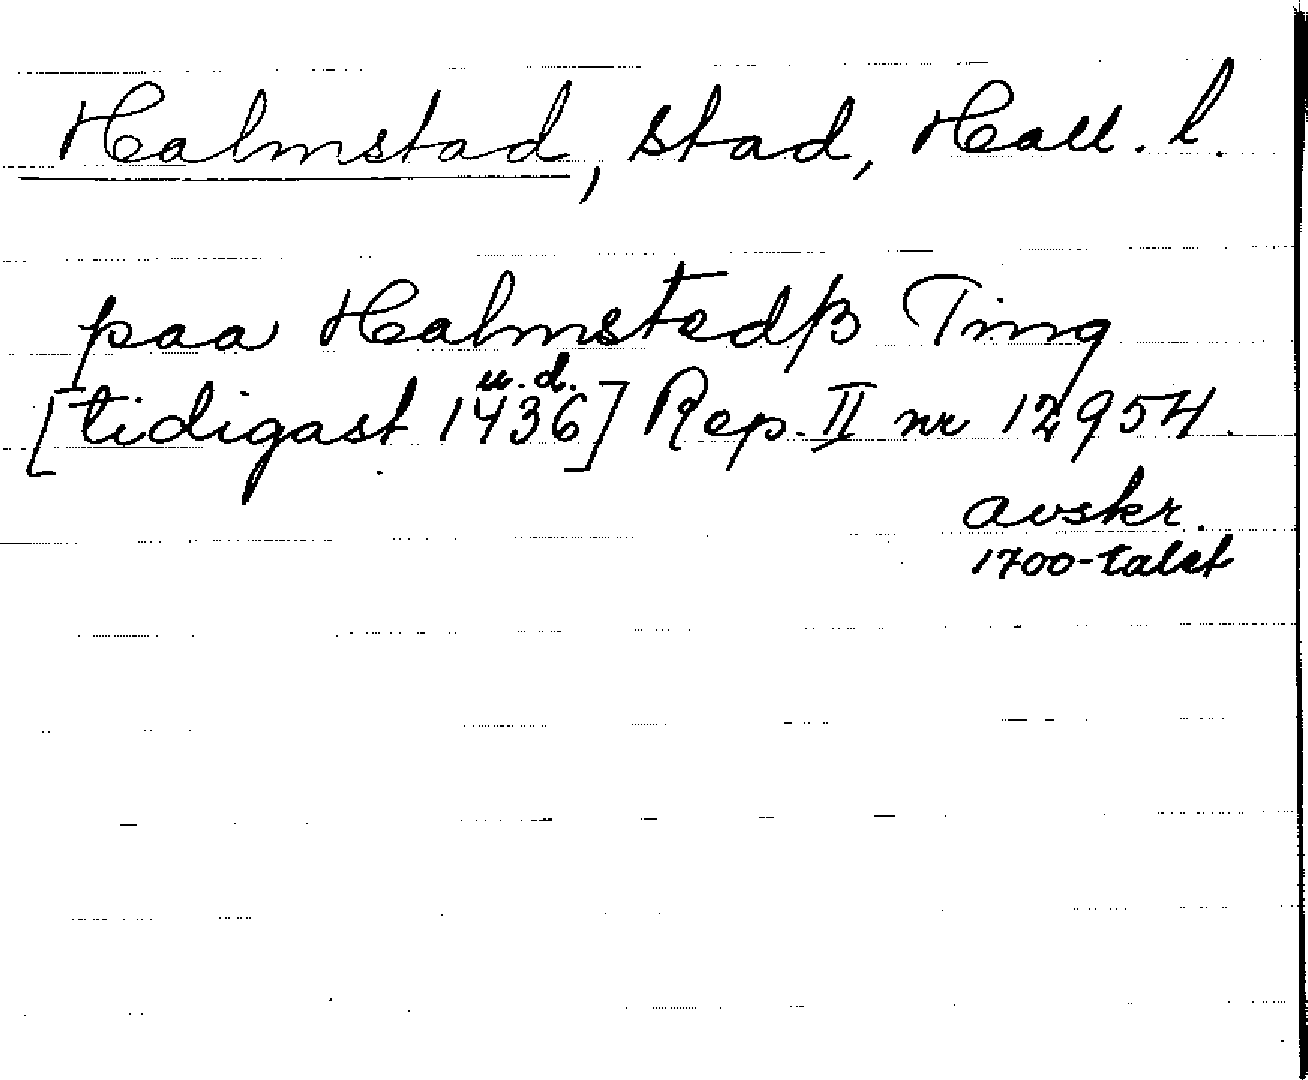 Halmstad, stad, Hall. l.
paa Halmstedß Ting
u. d.
[tidigast 1436] Rep. II nr 12954.
avskr.
1700-talet